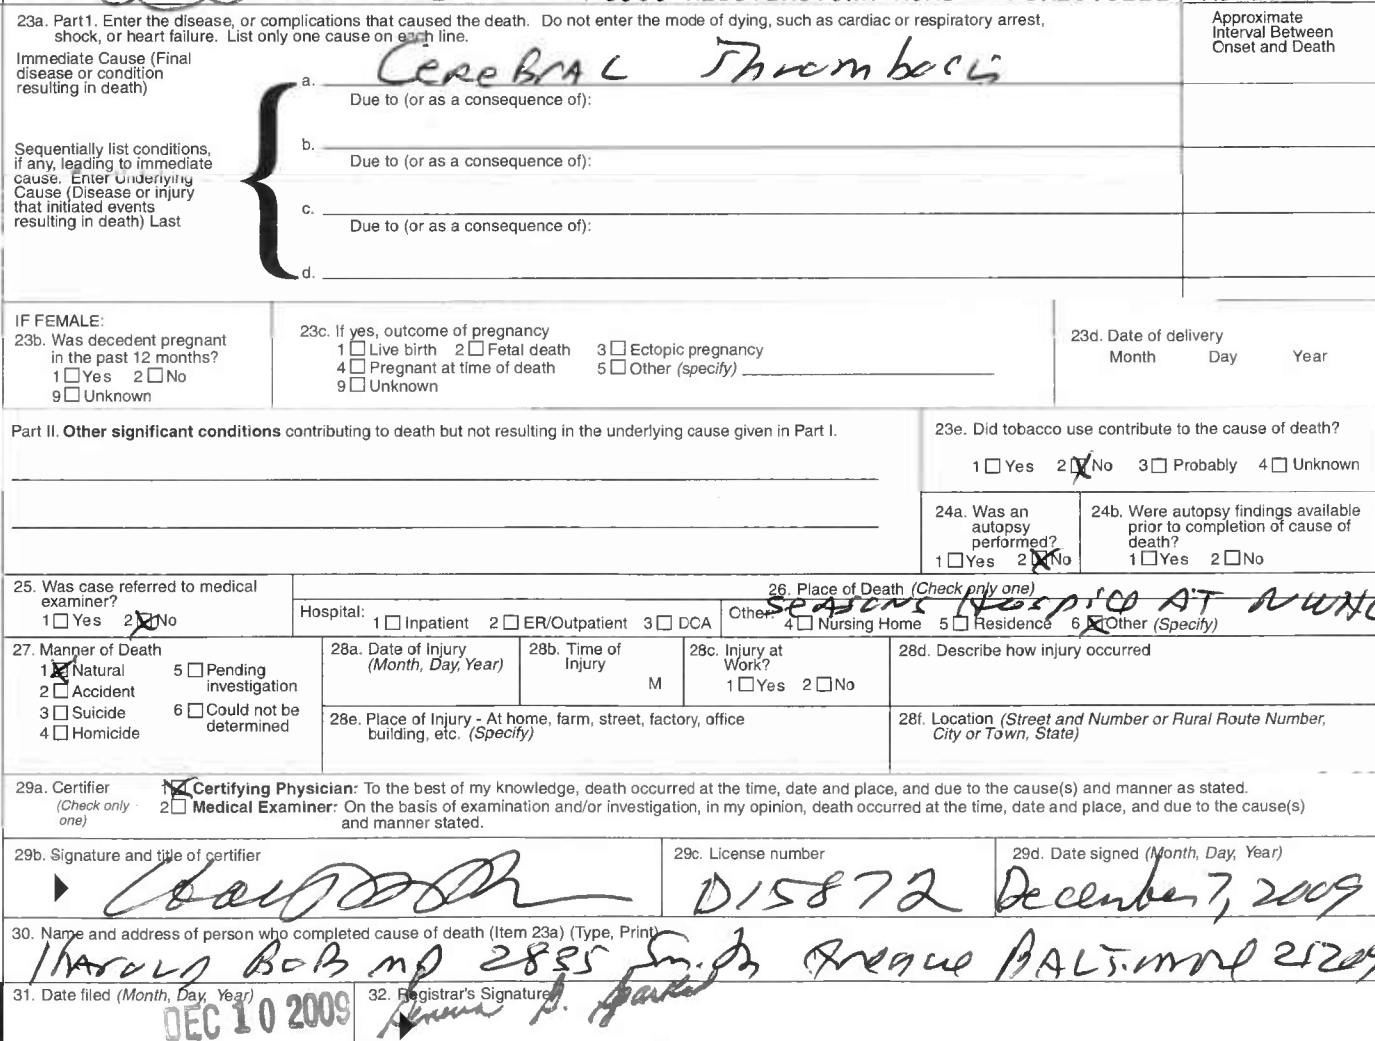 23a. Part1. Enter the disease, or complications that caused the death. Do not enter the mode of dying, such as cardiac or respiratory arrest,
shock, or heart failure. List only one cause on each line.
Approximate
Interval Between
Onset and Death
Immediate Cause (Final
disease or condition
resulting in death)
a. Cerebral Thrombosis
Due to (or as a consequence of):
Sequentially list conditions,
if any, leading to immediate
cause. Enter Underlying
Cause (Disease or injury
that initiated events
resulting in death) Last
b.
Due to (or as a consequence of):
c.
Due to (or as a consequence of):
d.
IF FEMALE:
23b. Was decedent pregnant
in the past 12 months?
1 Yes 2 No
9 Unknown
23c. If yes, outcome of pregnancy
1 Live birth 2 Fetal death 3 Ectopic pregnancy
4 Pregnant at time of death 5 Other (specify)
9 Unknown
23d. Date of delivery
Month Day Year
Part II. Other significant conditions contributing to death but not resulting in the underlying cause given in Part I.
23e. Did tobacco use contribute to the cause of death?
1 Yes 2 No 3 Probably 4 Unknown
24a. Was an
autopsy
performed?
1 Yes 2 No
24b. Were autopsy findings available
prior to completion of cause of
death?
1 Yes 2 No
25. Was case referred to medical
examiner?
1 Yes 2 No
26. Place of Death (Check only one)
Hospital: 1 Inpatient 2 ER/Outpatient 3 DCA
Other: SEASONS HOSPICE AT NWHC
4 Nursing Home 5 Residence 6 Other (Specify)
27. Manner of Death
1 Natural 5 Pending
investigation
2 Accident
3 Suicide 6 Could not be
determined
4 Homicide
28a. Date of Injury
(Month, Day, Year)
28b. Time of
Injury
M
28c. Injury at
Work?
1 Yes 2 No
28d. Describe how injury occurred
28e. Place of Injury - At home, farm, street, factory, office
building, etc. (Specify)
28f. Location (Street and Number or Rural Route Number,
City or Town, State)
29a. Certifier
(Check only
one)
1 Certifying Physician: To the best of my knowledge, death occurred at the time, date and place, and due to the cause(s) and manner as stated.
2 Medical Examiner: On the basis of examination and/or investigation, in my opinion, death occurred at the time, date and place, and due to the cause(s)
and manner stated.
29b. Signature and title of certifier
29c. License number
D15872
29d. Date signed (Month, Day, Year)
December 7, 2009
30. Name and address of person who completed cause of death (Item 23a) (Type, Print)
Harold Bob MD 2835 Smith Avenue Baltimore 21209
31. Date filed (Month, Day, Year)
DEC 10 2009
32. Registrar's Signature